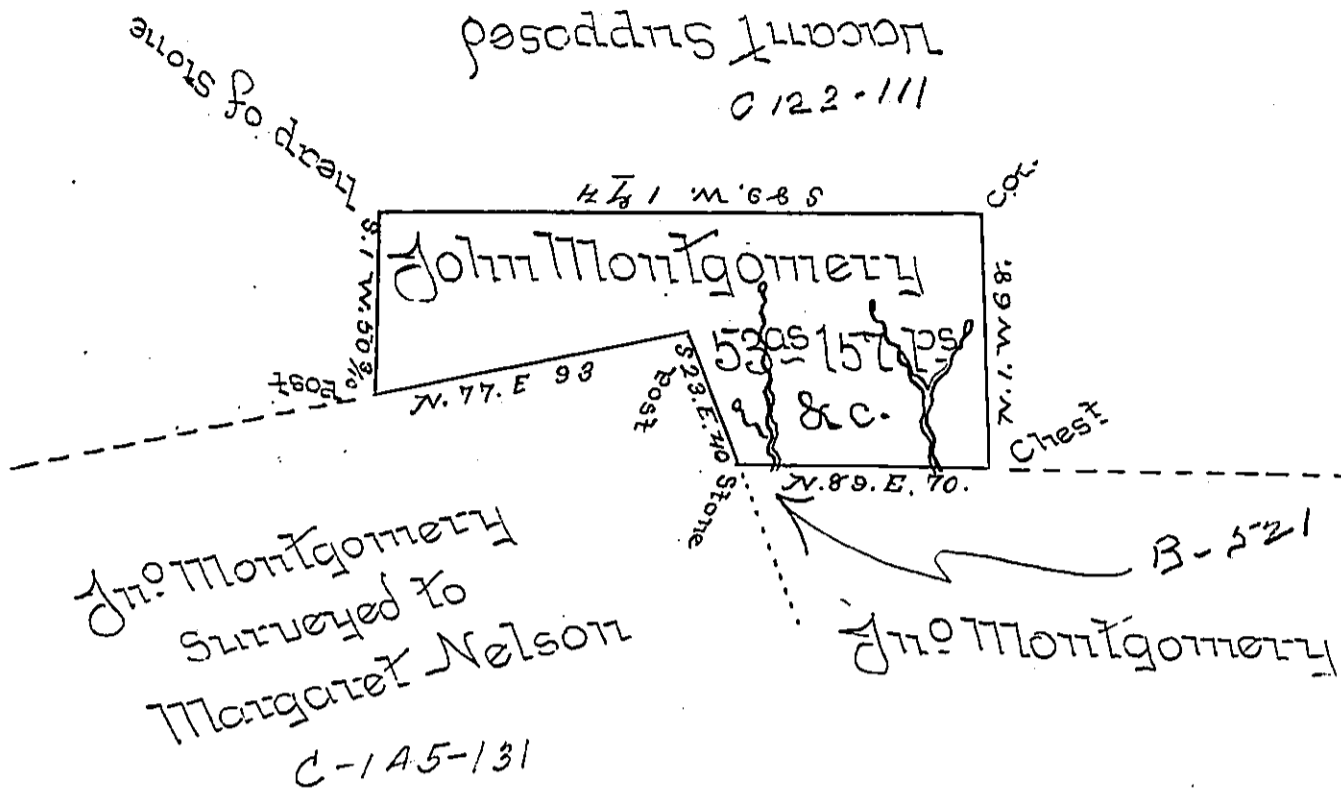 Vacant Supposed
C 122 · 111
heap of Stone
Cor.
S 89. W. 174
S. 1 W. 50 3/10
John Montgomery
53as 157 ps
& c.
N. 1. W 68.
Post
N. 77. E 93
Post
S 23. E. 40
Stone
N. 89. E. 70.
Chest
B - 521
Jno Montgomery
Surveyed to
Margaret Nelson
C-145-131
Jno Montgomery